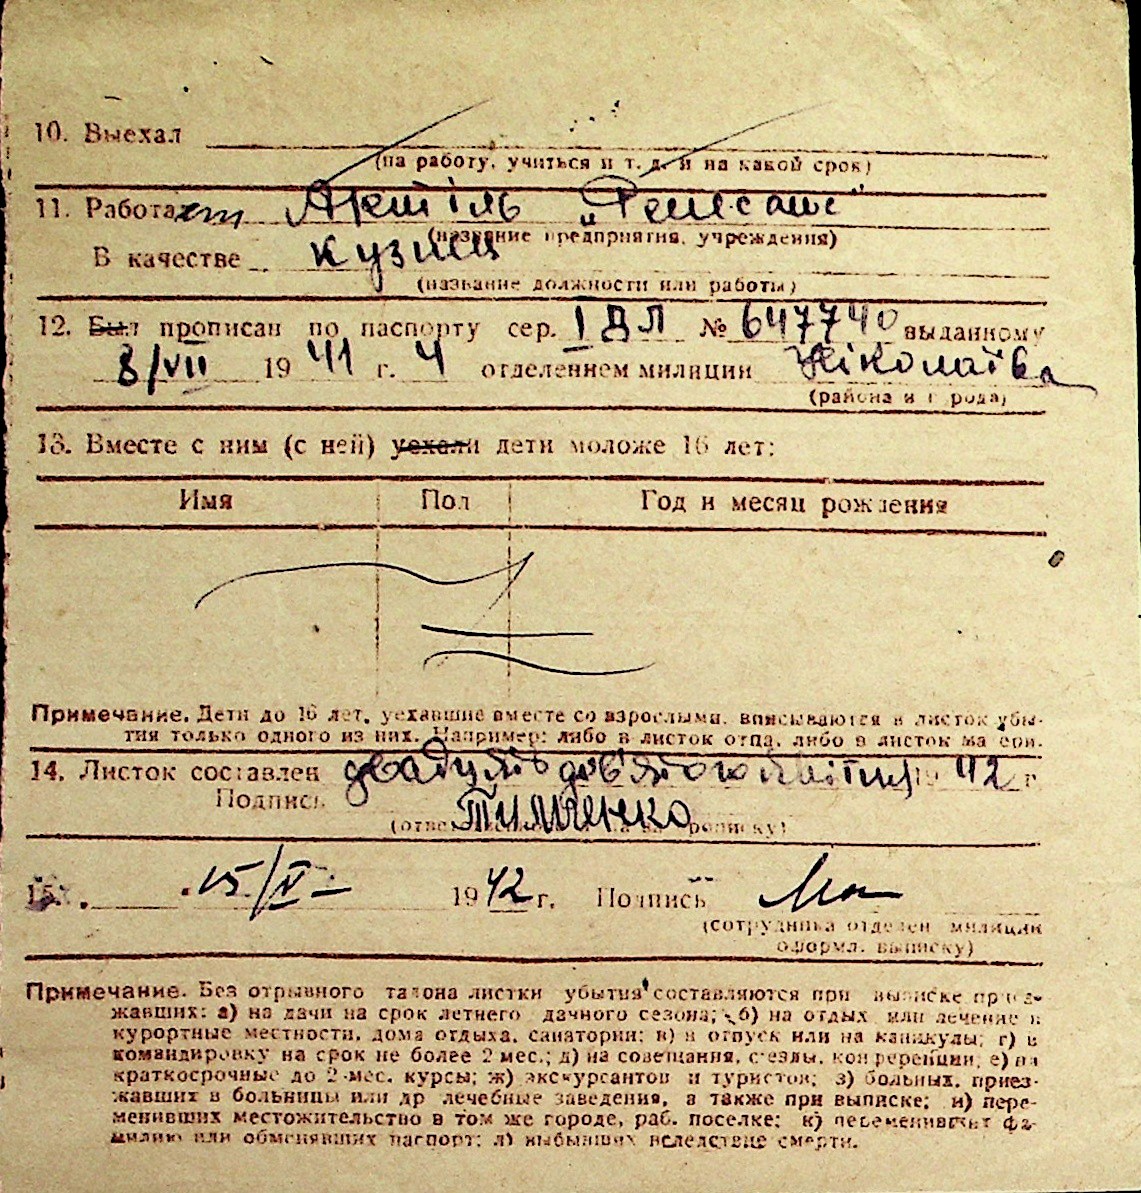 10. Выехал
(на работу, учиться и т. д. и на какой срок)
11. Работает Артіль „Ремсанс"
(название предприятия, учреждения)
В качестве кузнец
(название должности или работы)
12. Был прописан по паспорту сер. I ДЛ № 647740 выданному
8/VII 1941 г. 4 отделением милиции Ніколаїва
(района и города)
13. Вместе с ним (с ней) уехали дети моложе 16 лет:
Имя Пол Год и месяц рождения
Примечание. Дети до 16 лет, уехавшие вместе со взрослыми, вписываются в листок убы-
тия только одного из них. Например: либо в листок отца, либо в листок матери.
14. Листок составлен двадцять дев'ятого квітня 1942 г.
Подпись Тимченко
(ответственного за прописку)
15. 15/V 1942 г. Подпись
(сотрудника отделен. милиции
оформл. выписку)
Примечание. Без отрывного талона листки убытия составляются при выписке приез-
жавших: а) на дачи на срок летнего дачного сезона; б) на отдых или лечение в
курортные местности, дома отдыха, санатории; в) в отпуск или на каникулы; г) в
командировку на срок не более 2 мес.; д) на совещания, съезды, конференции; е) на
краткосрочные до 2-мес. курсы; ж) экскурсантов и туристов; з) больных, приез-
жавших в больницы или др лечебные заведения, а также при выписке; и) пере-
менивших местожительство в том же городе, раб. поселке; к) переменивших фа-
милию или обменявших паспорт; л) выбывших вследствие смерти.